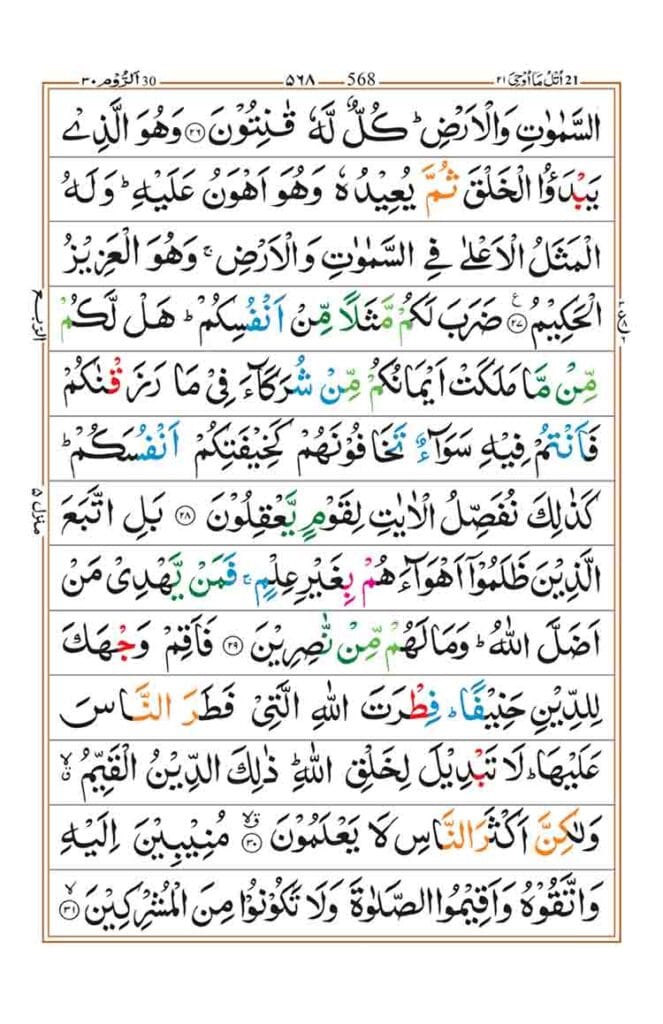 30 اَلرُّوْم ٣٠ ٥٦٨ 568 اُتْلُ مَآ اُوْحِیَ ٢١ 21
السَّمٰوٰتِ وَالْاَرْضِ ؕ كُلٌّ لَّهٗ قٰنِتُوْنَ ﴿۲۶﴾ وَهُوَ الَّذِیْ
یَبْدَؤُا الْخَلْقَ ثُمَّ یُعِیْدُهٗ وَهُوَ اَهْوَنُ عَلَیْهِ ؕ وَلَهُ
الْمَثَلُ الْاَعْلٰی فِی السَّمٰوٰتِ وَالْاَرْضِ ۚ وَهُوَ الْعَزِیْزُ
الْحَكِیْمُ ﴿۲۷﴾ ع ضَرَبَ لَكُمْ مَّثَلًا مِّنْ اَنْفُسِكُمْ ؕ هَلْ لَّكُمْ
مِّنْ مَّا مَلَكَتْ اَیْمَانُكُمْ مِّنْ شُرَكَآءَ فِیْ مَا رَزَقْنٰكُمْ
فَاَنْتُمْ فِیْهِ سَوَآءٌ تَخَافُوْنَهُمْ كَخِیْفَتِكُمْ اَنْفُسَكُمْ ؕ
كَذٰلِكَ نُفَصِّلُ الْاٰیٰتِ لِقَوْمٍ یَّعْقِلُوْنَ ﴿۲۸﴾ بَلِ اتَّبَعَ
الَّذِیْنَ ظَلَمُوْۤا اَهْوَآءَهُمْ بِغَیْرِ عِلْمٍ ۚ فَمَنْ یَّهْدِیْ مَنْ
اَضَلَّ اللّٰهُ ؕ وَمَا لَهُمْ مِّنْ نّٰصِرِیْنَ ﴿۲۹﴾ فَاَقِمْ وَجْهَكَ
لِلدِّیْنِ حَنِیْفًا ؕ فِطْرَتَ اللّٰهِ الَّتِیْ فَطَرَ النَّاسَ
عَلَیْهَا ؕ لَا تَبْدِیْلَ لِخَلْقِ اللّٰهِ ؕ ذٰلِكَ الدِّیْنُ الْقَیِّمُ ۙۗ
وَلٰكِنَّ اَكْثَرَ النَّاسِ لَا یَعْلَمُوْنَ ﴿۳۰﴾ مُنِیْبِیْنَ اِلَیْهِ
وَاتَّقُوْهُ وَاَقِیْمُوا الصَّلٰوةَ وَلَا تَكُوْنُوْا مِنَ الْمُشْرِكِیْنَ ﴿۳۱﴾ ۙ
الرّبع
منزل ۵